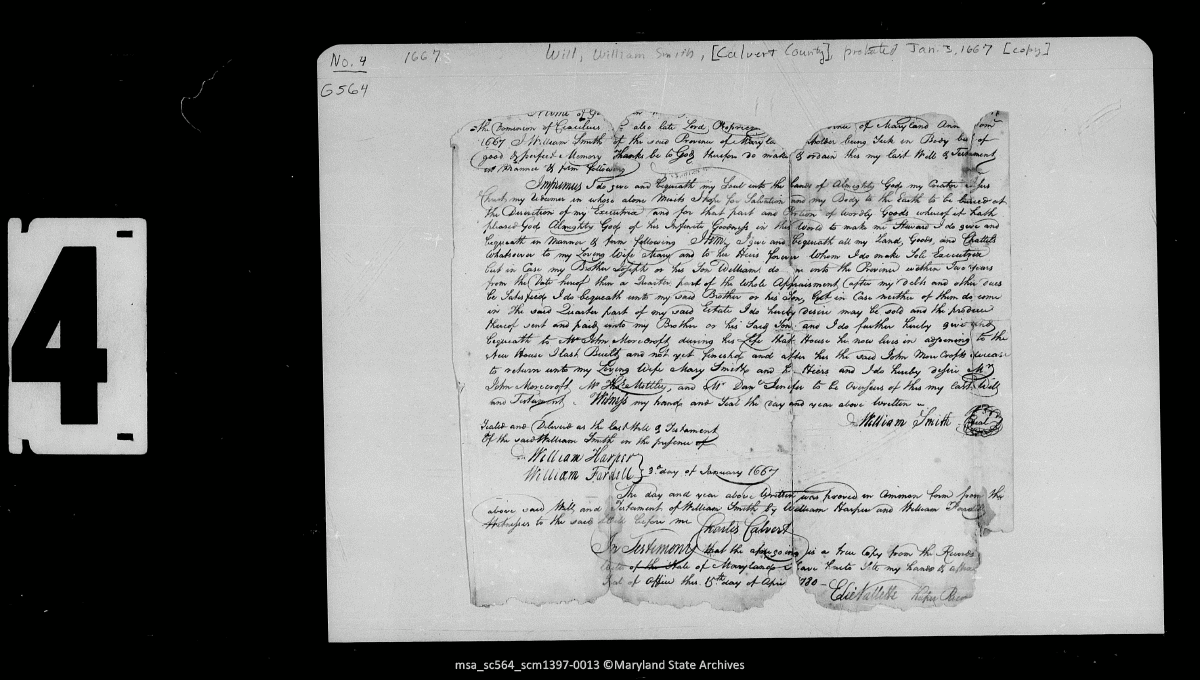 No. 4 1667 Will, William Smith, [Calvert County], probated Jan. 3, 1667 [copy]
G564
4
the Dominion of Cecilius also late Lord Proprie of Maryland Ann
1667 I William Smith of the said Province of Maryla being Sick in Body but of
good & perfect Memory Thanks be to God therefore do make & ordain this my last Will & Testament
in Manner & form following
Imprimus I do give and bequeath my Soul into the hands of Almighty God my Creator
my Redeemer in whose alone Merits I hope for Salvation and my Body to the Earth to be buried at
the Discretion of my Executrix and for that part and Portion of Wordly Goods whereof it hath
pleased God Almighty God of his Infinite Goodness in this World to make me Steward I do give and
bequeath in Manner & form following Item I give and bequeath all my Land, Goods, and Chattels
Whatsoever to my Loving Wife Mary and to her Heirs forever Whom I do make Sole Executrix
but in Case my Brother Joseph or his Son William do e into the Province within Two Years
from the Date hereof then a Quarter part of the Whole Appraisment (after my debts and other dues
be Satisfied I do bequeath unto my said Brother or his Son, but in Case neither of them do come
in the said Quarter part of my said Estate I do hereby desire may be sold and the produce
thereof sent and paid unto my Brother or his Said Son and I do further hereby give and
bequeath to Mr John Morecroft during his Life that House he now lives in adjoining to the
New House I last Built and not yet finished and after her the said John More Crofts decease
to return unto my Loving Wife Mary Smith and Heirs and I do hereby desire Mr
John Morecroft, Mr Mottley, and Mr Danl Jenifer to be Overseers of this my last Will
and Testament. Witness my hand and Seal the day and year above Written
William Smith Seal
Sealed and Delivered as the last Will & Testament
Of the said William Smith in the presence of
William Harper
William Fardell } 3d day of January 1667
The day and year above Written was proved in Common form from the
above said Will and Testament of William Smith by William Harper and William
Witnesses to the said before me Charles Calvert
In Testimony that the aforegoing is a true Copy from the Records
of the State of Maryland I have hereto Sett my hand &
Seal of Office this 15th day of Apri 1780
Edie Vallette Keeper
msa_sc564_scm1397-0013 ©Maryland State Archives